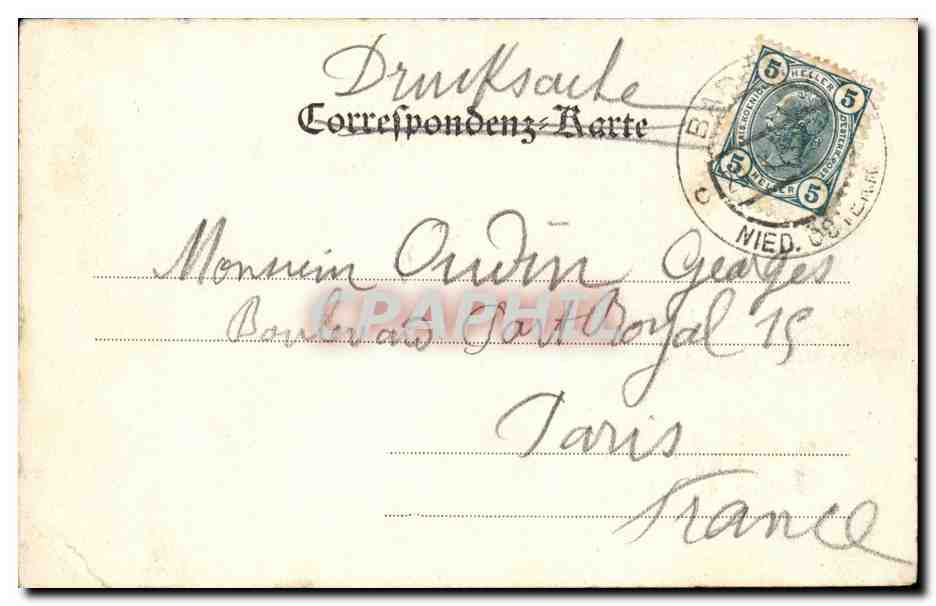 Drucksache
Correspondenz-Karte
5 HELLER 5
KAIS. KOENIGL. OESTERR. POST
5 HELLER 5
BAD
NIED. ÖSTERR.
Monsieur Oudin Georges
Boulevard Port Royal 15
CPAPHIL
Paris
France